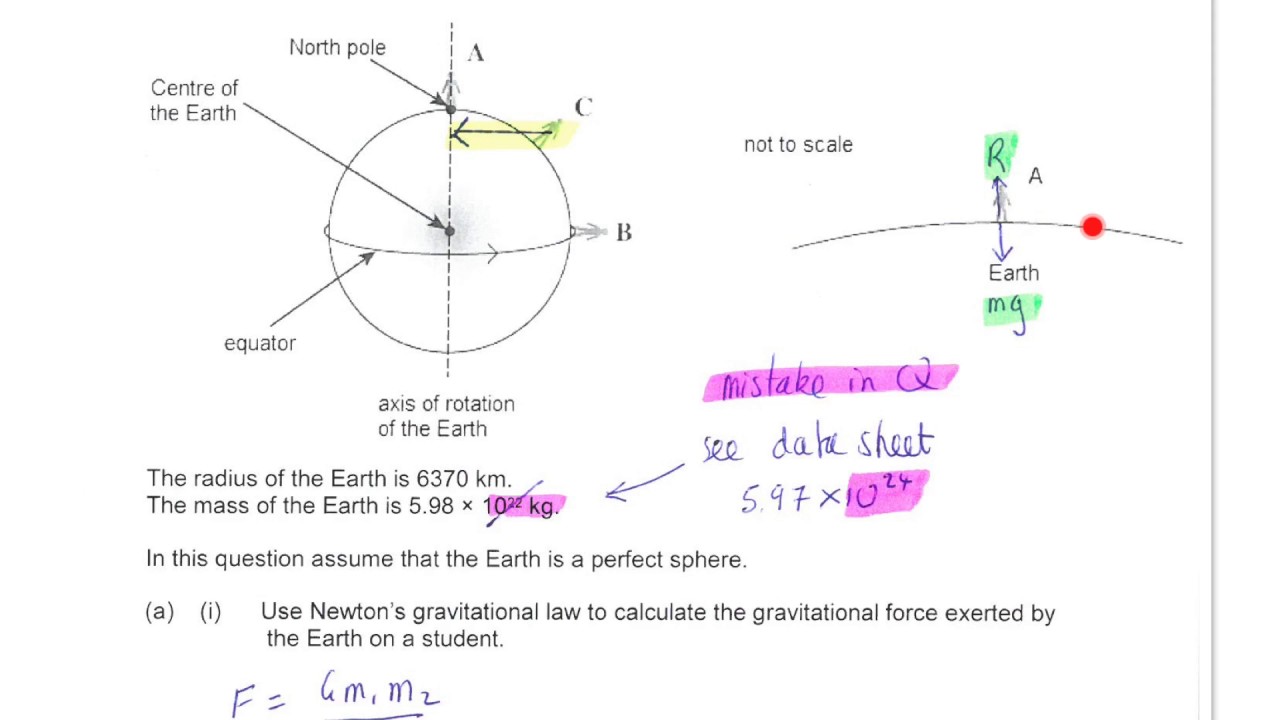 North pole
A
Centre of
the Earth
C
not to scale
R
A
B
Earth
mg
equator
mistake in Q
axis of rotation
of the Earth
see data sheet
The radius of the Earth is 6370 km.
5.97 × 10²⁴
The mass of the Earth is 5.98 × 10²² kg.
In this question assume that the Earth is a perfect sphere.
(a) (i) Use Newton's gravitational law to calculate the gravitational force exerted by
the Earth on a student.
F = Gm₁m₂